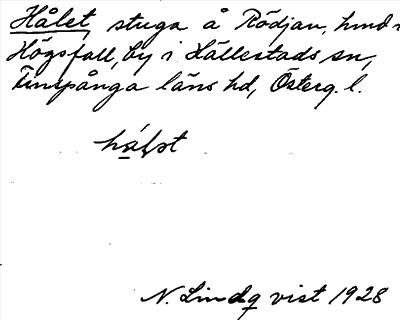 Hålet, stuga å Rödjan, hmd
Högsfall, by i Hällestads sn,
Finspånga läns hd, Österg. l.
N. Lindqvist 1928